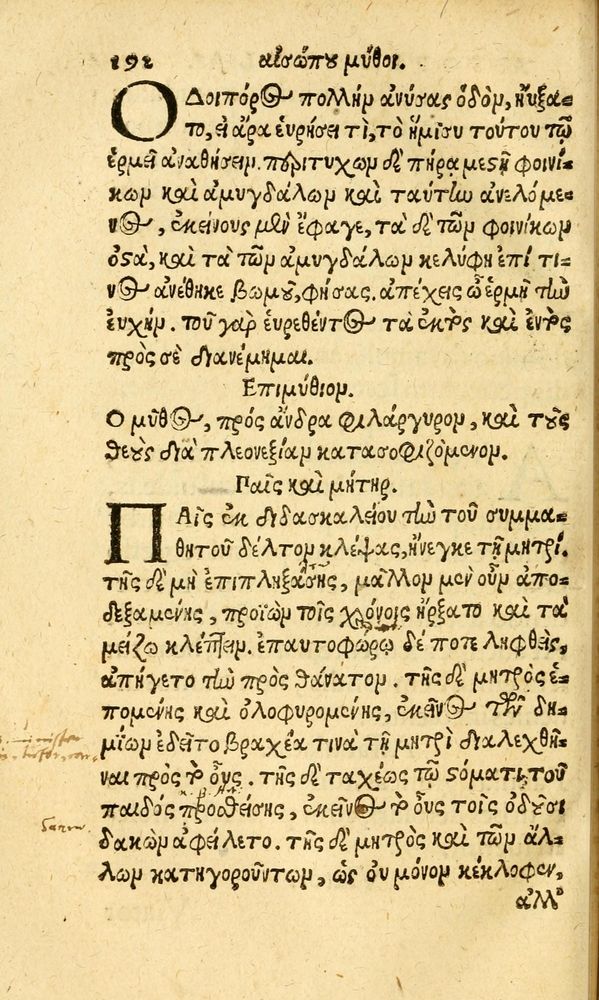 192 αἰσώπου μῦθοι.
ὉΔοιπόρος πολλὴν ἀνύσας ὁδὸν, ηὔξα-
το, εἰ ἄρα εὑρήσει τὶ, τὸ ἥμισυ τούτου τῷ
ἑρμεῖ ἀναθήσειν. περιτυχὼν δὲ πήρᾳ μεστῇ φοινί-
κων καὶ ἀμυγδάλων καὶ ταύτην ἀνελόμε-
νος, ἐκείνους μὲν ἔφαγε, τὰ δὲ τῶν φοινίκων
ὀστᾶ, καὶ τὰ τῶν ἀμυγδάλων κελύφη ἐπί τι-
νος ἀνέθηκε βωμοῦ, φήσας. ἀπέχεις ὦ ἑρμῆ τὴν
εὐχήν. τοῦ γὰρ εὑρεθέντος τὰ ἐκτὸς καὶ ἐντὸς
πρὸς σὲ διανέμημαι.
Ἐπιμύθιον.
Ὁ μῦθος, πρὸς ἄνδρα φιλάργυρον, καὶ τοὺς
θεοὺς διὰ πλεονεξίαν κατασοφιζόμενον.
Παῖς καὶ μήτηρ.
ΠΑῖς ἐκ διδασκαλείου τὴν τοῦ συμμα-
θητοῦ δέλτον κλέψας, ἤνεγκε τῇ μητρί.
τῆς δὲ μὴ ἐπιπληξάσης, μᾶλλον μὲν οὖν ἀπο-
δεξαμένης, προϊὼν τοῖς χρόνοις ἤρξατο καὶ τὰ
μείζω κλέπτειν. ἐπαυτοφώρῳ δέ ποτε ληφθεὶς,
ἀπήγετο τὴν πρὸς θάνατον. τῆς δὲ μητρὸς ἑ-
πομένης καὶ ὀλοφυρομένης, ἐκεῖνος τῶν δη-
μίων ἐδεῖτο βραχέα τινὰ τῇ μητρὶ διαλεχθῆ-
ναι πρὸς τὸ οὖς. τῆς δὲ ταχέως τῷ στόματι τοῦ
παιδὸς προσθείσης, ἐκεῖνος τὸ οὖς τοῖς ὀδοῦσι
δακὼν ἀφείλετο. τῆς δὲ μητρὸς καὶ τῶν ἄλ-
λων κατηγορούντων, ὡς οὐ μόνον κέκλοφεν,
ἀλλ'